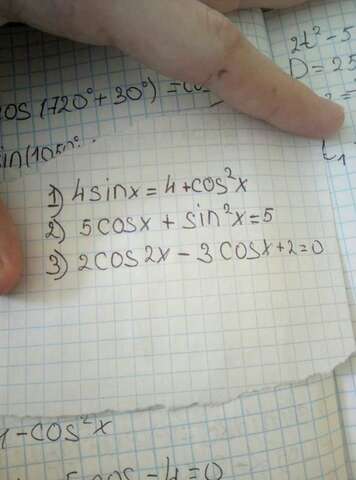 2t² - 5
D = 25
cos (720° + 30°) = co
t₁
1) 4 sinx = 4 + cos²x
2) 5 cosx + sin²x = 5
3) 2 cos 2x - 3 cosx + 2 = 0
1 - cos²x
- 4 = 0